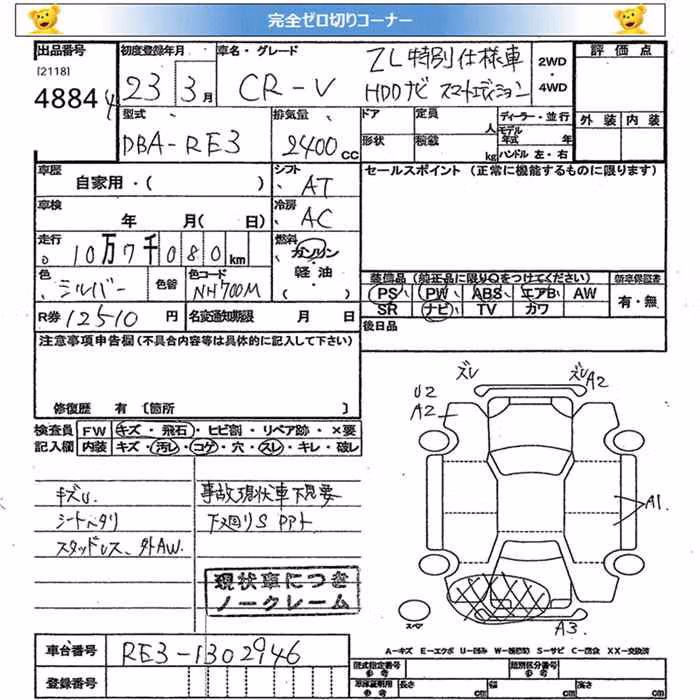 完全ゼロ切りコーナー
出品番号 初度登録年月 車名・グレード 評価点
[2118] 4884 23 3月 CR-V ZL特別仕様車 2WD
HDDナビ スマートエディション ・4WD
型式 排気量 ドア 定員 人 ディーラー・並行 外装 内装
DBA-RE3 2400cc 形状 積載 kg モデル年式 年
ハンドル 左・右
車歴 シフト セールスポイント (正常に機能するものに限ります)
自家用・( ) AT
車検 冷房
年 月( 日) AC
走行 燃料
10万7千080km ガソリン
軽油
( )
色 色替 色コード 装備品 (純正品に限り○をつけてください) 新車保証書
シルバー NH700M PS PW ABS エアB AW 有・無
SR ナビ TV カワ
R券 12510円 名変通知期限 月 日 後日品
注意事項申告欄(不具合内容等は具体的に記入して下さい)
修復歴 有 〔箇所 〕
検査員 FW キズ・飛石・ヒビ割・リペア跡・×要
記入欄 内装 キズ・汚レ・コゲ・穴・スレ・キレ・破レ
ズレ ズレ A2
U2
A2
A1
キズU
事故現状車下見要
シートヘタリ 下廻りS PPト
スタッドレス、外AW
現状車につき
ノークレーム
スペア
A3
A-キズ E-エクボ U-凹み W-補修跡 S-サビ C-腐食 XX-交換済
車台番号 RE3-1302946
登録番号
型式指定番号 参考 類別区分番号 参考
車庫証明用 参考 長さ cm 幅 cm 高さ cm